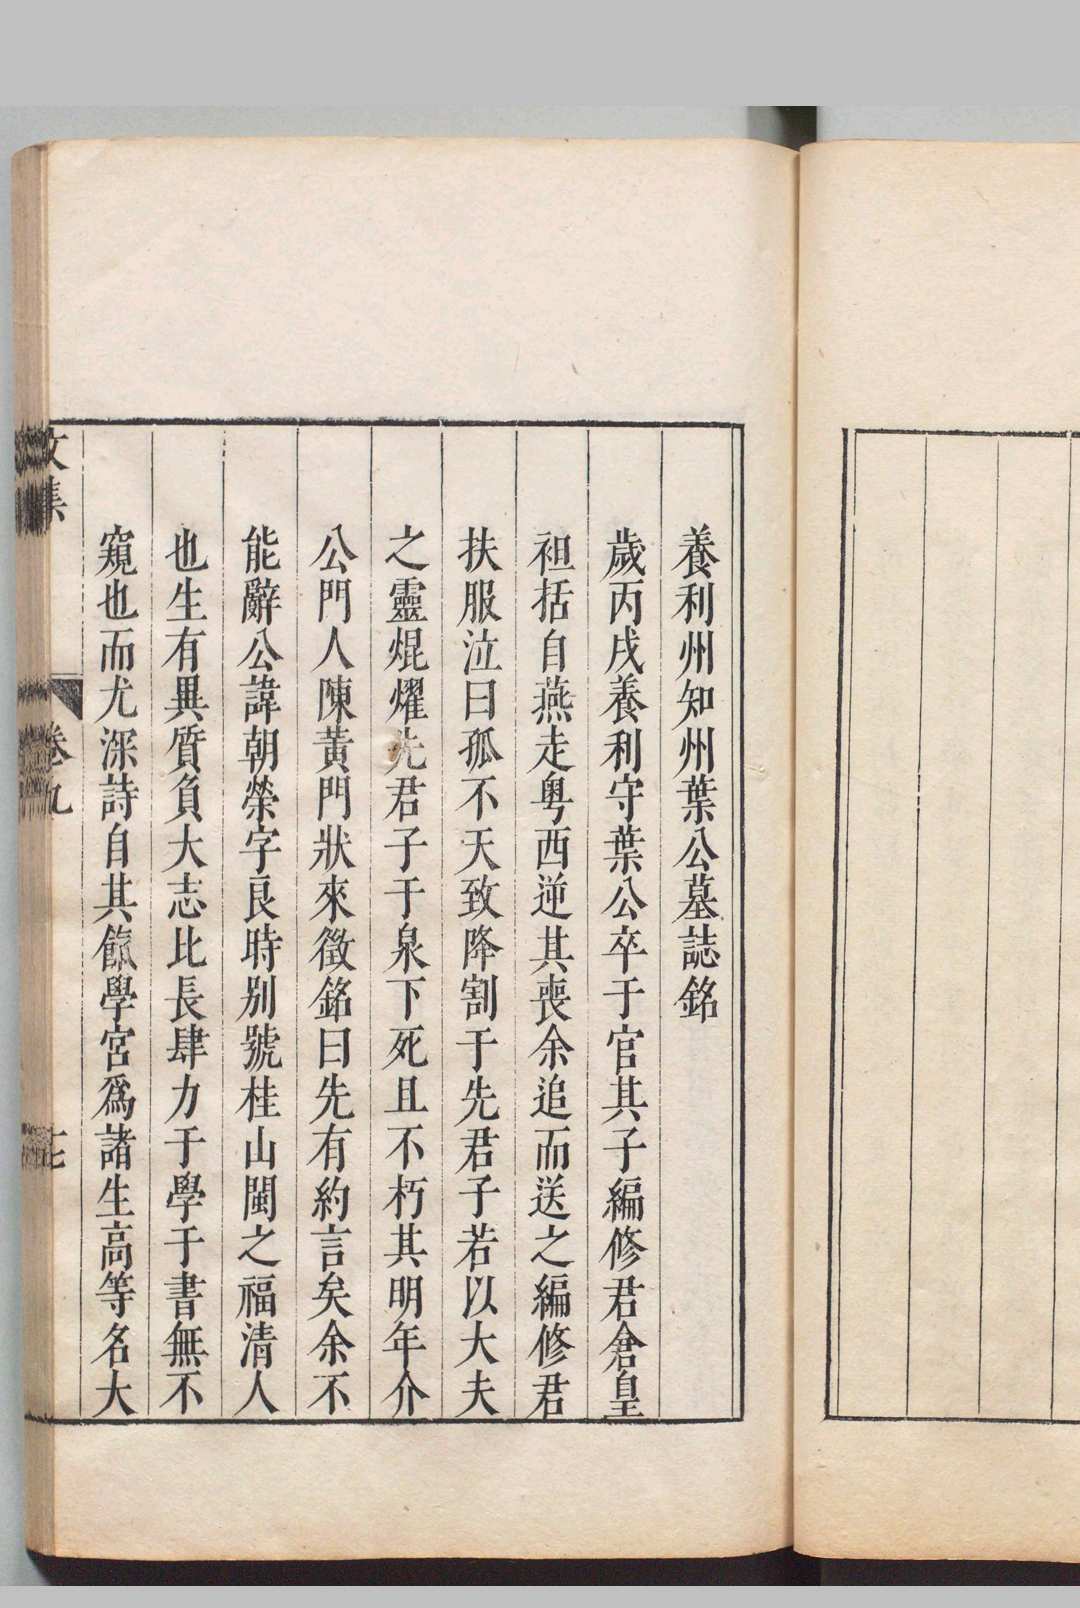 養利州知州葉公墓誌銘
歲丙戌養利守葉公卒于官其子編修君倉皇
袒括自燕走粵西逆其喪余追而送之編修君
扶服泣曰孤不天致降割于先君子若以大夫
之靈焜燿先君子于泉下死且不朽其明年介
公門人陳黃門狀來徵銘曰先有約言矣余不
能辭公諱朝榮字良時別號桂山閩之福清人
也生有異質負大志比長肆力于學于書無不
窺也而尤深詩自其餼學宮為諸生高等名大
文集
卷九
七